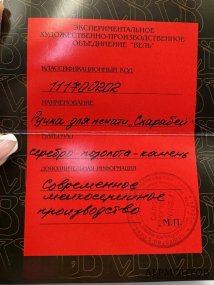 ЭКСПЕРИМЕНТАЛЬНОЕ
ХУДОЖЕСТВЕННО-ПРОИЗВОДСТВЕННОЕ
ОБЪЕДИНЕНИЕ "ВЕЛЬ"
КЛАССИФИКАЦИОННЫЙ КОД
111700202
НАИМЕНОВАНИЕ
Ручка для печати „Скарабей"
МАТЕРИАЛ
серебро-позолота-камень
ДОПОЛНИТЕЛЬНАЯ ИНФОРМАЦИЯ
Современное
мелкосерийное
производство
М.П.